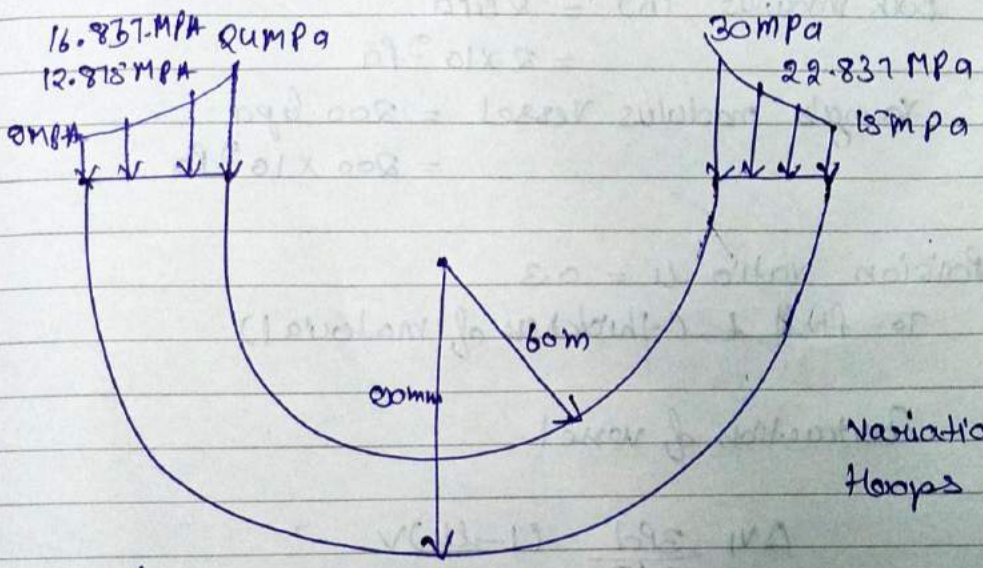 16.837 MPA 24MPa
12.875 MPA
9MPA
30MPa
22.837 MPa
15MPa
60m
90mm
Variatio
Hoops